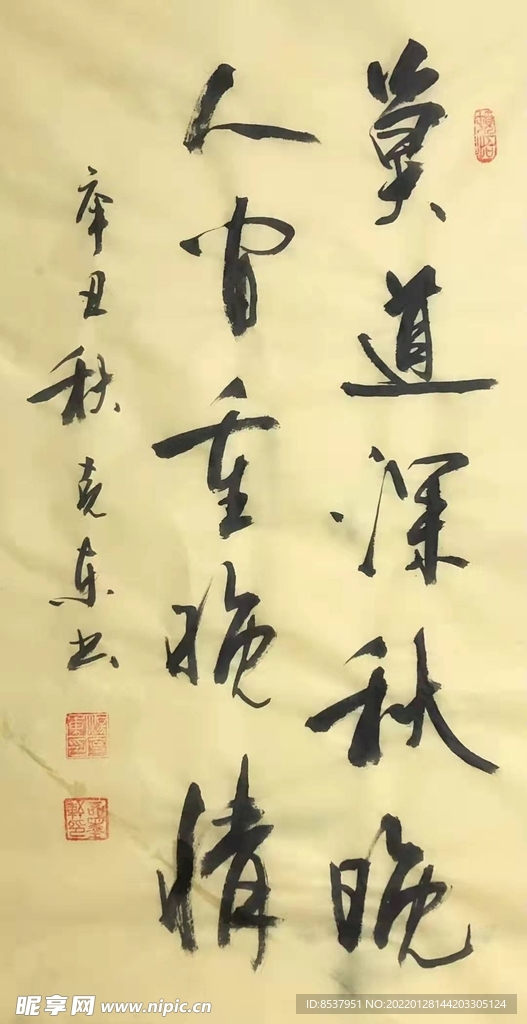 莫道深秋晚
人间重晚情
辛丑秋克东书
昵享网 www.nipic.cn
ID:8537951 NO:20220128144203305124